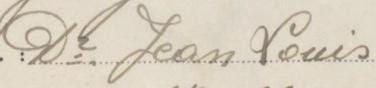 : Dr. Jean Louis